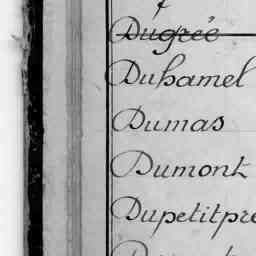 Dugrée
Duhamel
Dumas
Dumont
Dupetitpré